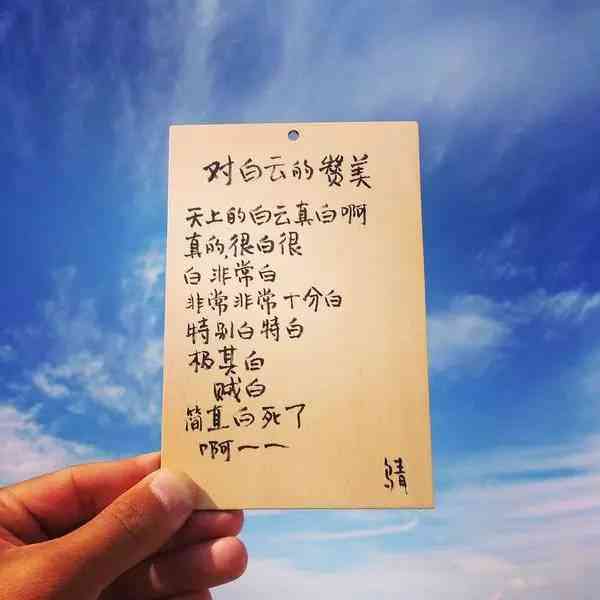 对白云的赞美
天上的白云真白啊
真的,很白很
白非常白
非常非常十分白
特别白特白
极其白
贼白
简直白死了
啊一一